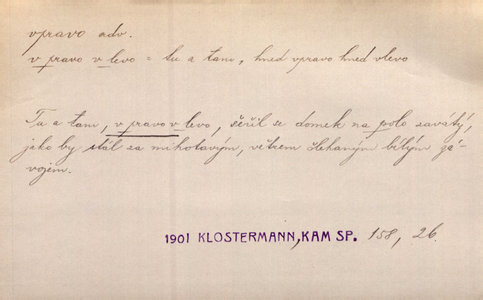 vpravo adv.
v pravo v levo = tu a tam, hned vpravo hned vlevo
Tu a tam, v pravo v levo, šeřil se domek na polo zavátý,
jako by stál za mihotavým, větrem šlehaným bílým zá-
vojem.
1901 KLOSTERMANN, KAM SP. 158, 26.